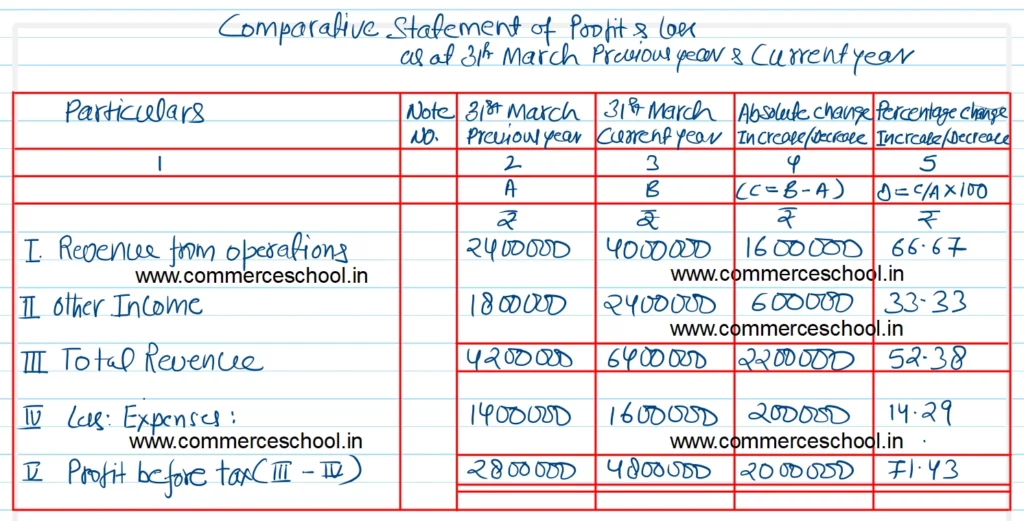 Comparative Statement of Profit & Loss
as at 31st March Previous year & Current year
Particulars Note No. 31st March Previous year 31st March Current year Absolute change Increase/Decrease Percentage change Increase/Decrease
1 2 3 4 5
A B (C = B - A) D = C/A × 100
₹ ₹ ₹ ₹
I. Revenue from operations 2400000 4000000 1600000 66.67
www.commerceschool.in www.commerceschool.in
II Other Income 1800000 2400000 600000 33.33
www.commerceschool.in
III Total Revenue 4200000 6400000 2200000 52.38
IV Less: Expenses: 1400000 1600000 200000 14.29
www.commerceschool.in www.commerceschool.in
V Profit before tax (III - IV) 2800000 4800000 2000000 71.43